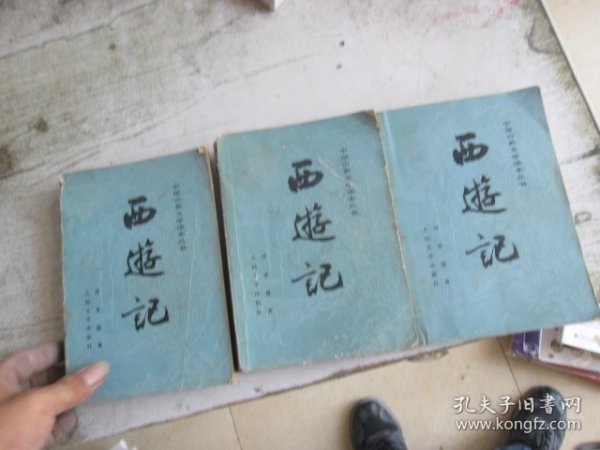 中国古典文学读本丛书
西遊記
吴承恩著
人民文学出版社
中国古典文学读本丛书
西遊記
吴承恩著
人民文学出版社
中国古典文学读本丛书
西遊記
吴承恩著
人民文学出版社
孔夫子旧书网
www.kongfz.com